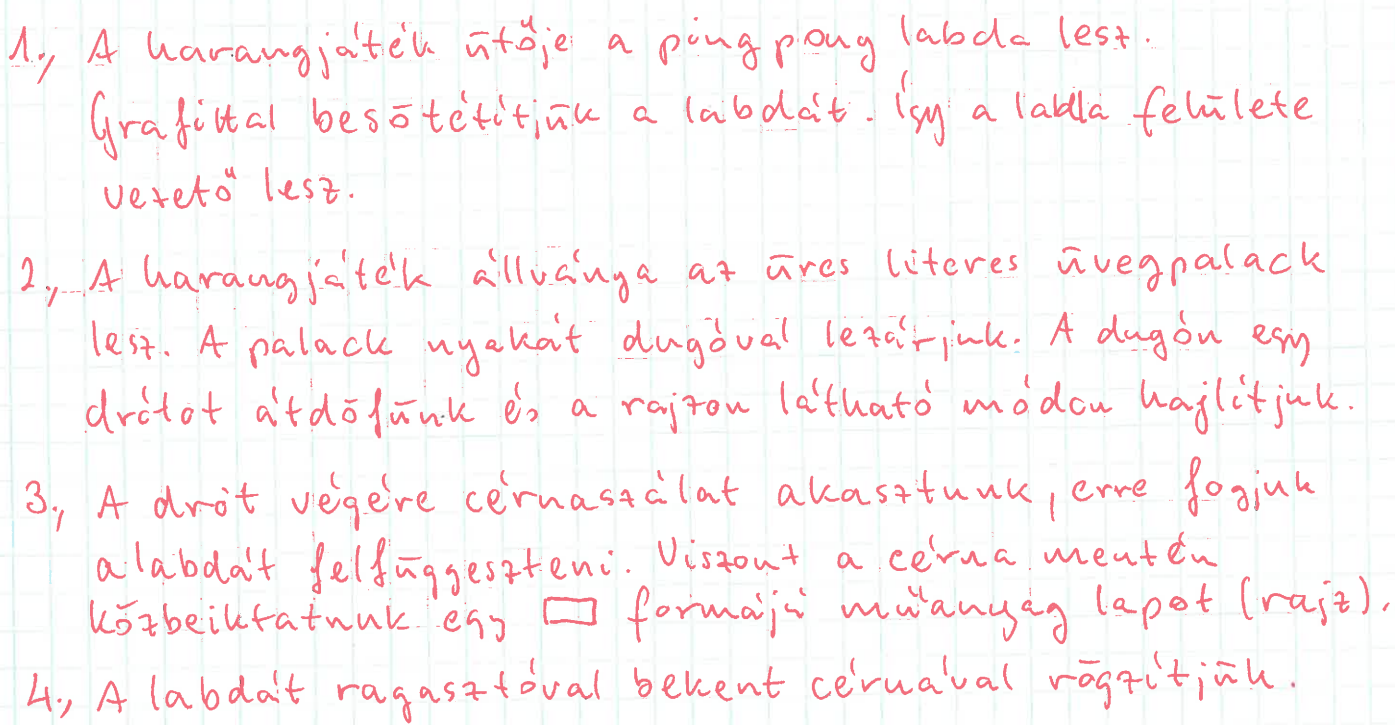 1., A harangjáték ütője a pingpong labda lesz.
Grafittal besötétítjük a labdát. Így a labda felülete
vezető lesz.
2., A harangjáték állványa az üres literes üvegpalack
lesz. A palack nyakát dugóval lezárjuk. A dugón egy
drótot átdöfünk és a rajzon látható módon hajlítjuk.
3., A drót végére cérnaszálat akasztunk, erre fogjuk
a labdát felfüggeszteni. Viszont a cérna mentén
közbeiktatnuk egy ▭ formájú műanyag lapot (rajz).
4., A labdát ragasztóval bekent cérnával rögzítjük.